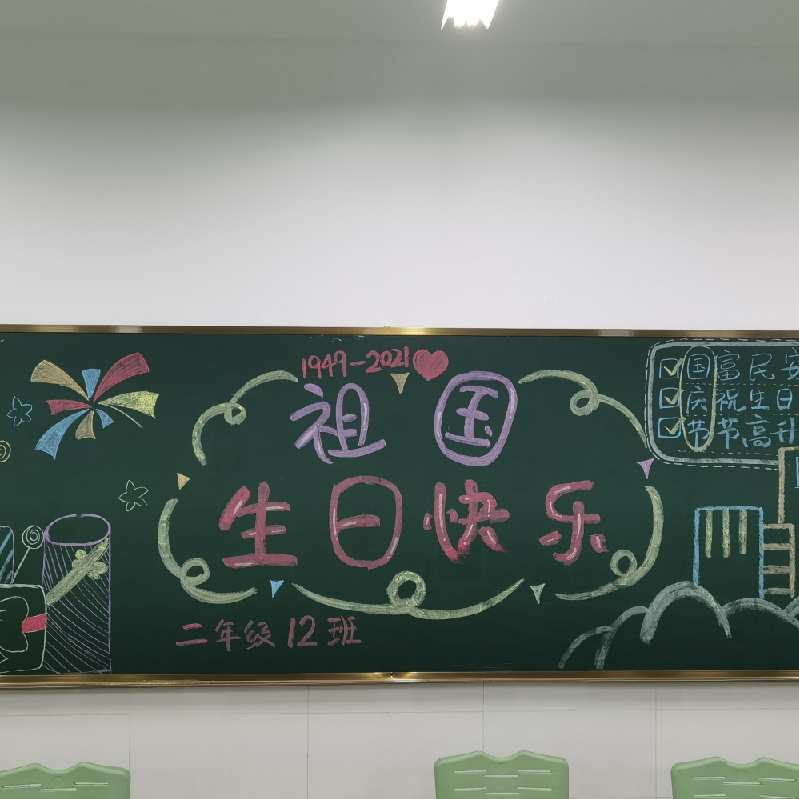 1949-2021
祖国
生日快乐
二年级12班
国富民安
庆祝生日
节节高升